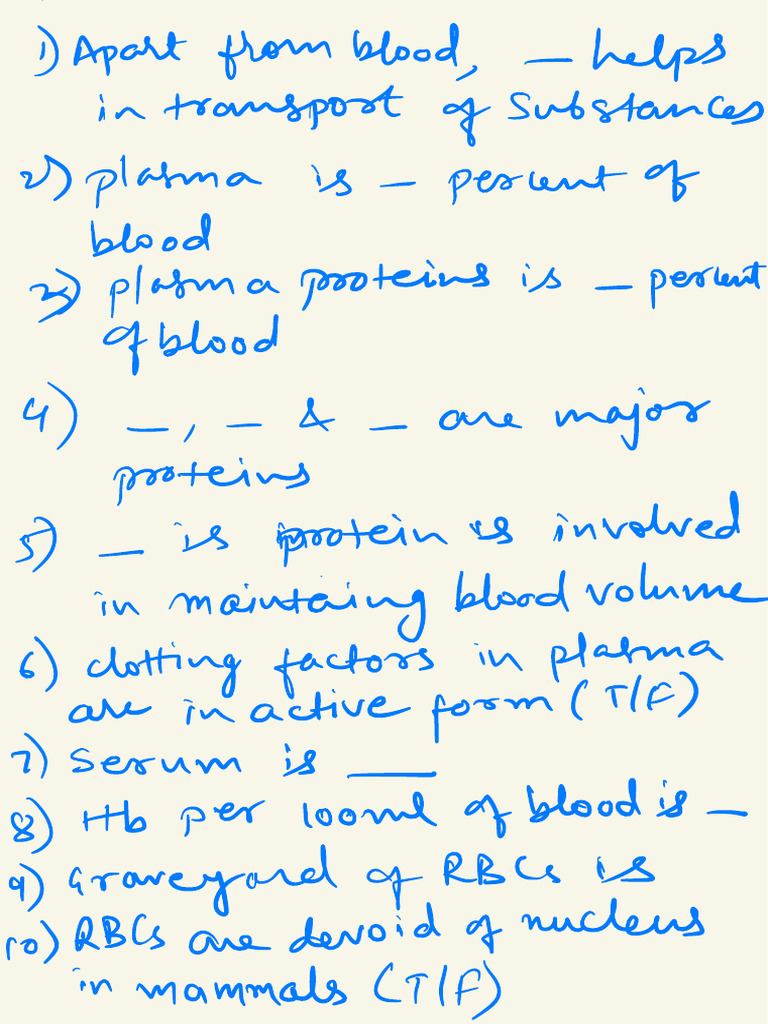 1) Apart from blood, _ helps
in transport of substances
2) plasma is _ percent of
blood
3) plasma proteins is _ percent
of blood
4) _, _ & _ are major
proteins
5) _ is protein is involved
in maintaing blood volume
6) clotting factors in plasma
are in active form (T/F)
7) Serum is ___
8) Hb per 100ml of blood is _
9) Graveyard of RBCs is
10) RBCs are devoid of nucleus
in mammals (T/F)